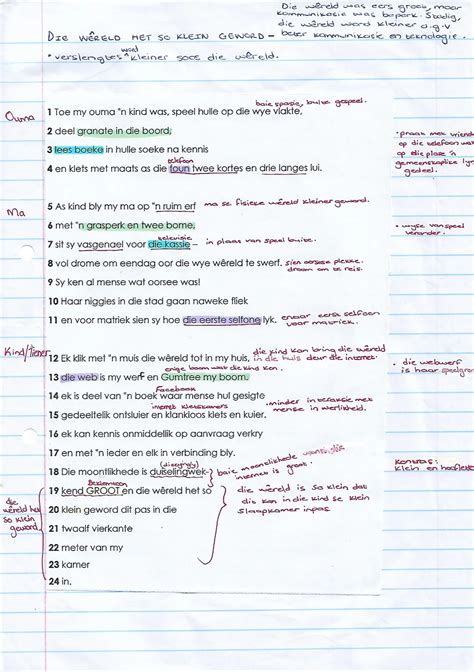 Die wêreld was eers groot, maar
kommunikasie was beperk. Stadig,
die wêreld word kleiner d.g.v
DIE WÊRELD HET SO KLEIN GEWORD – beter kommunikasie en tegnologie.
word
* verslengtes kleiner soos die wêreld.
baie spasie, buite gespeel.
Ouma
1 Toe my ouma 'n kind was, speel hulle op die wye vlakte,
2 deel granate in die boord,
3 lees boeke in hulle soeke na kennis
telefoon
4 en klets met maats as die foun twee kortes en drie langes lui.
• praat met vriende
op die telefoon wat
op die plase 'n
gemeenskaplike lyn
gedeel.
Ma
5 As kind bly my ma op 'n ruim erf
ma se fisieke wêreld kleiner geword.
6 met 'n grasperk en twee bome,
televisie
7 sit sy vasgenael voor die kassie –
in plaas van speel buite.
• wyse van speel
verander.
8 vol drome om eendag oor die wye wêreld te swerf.
sien eersste plekke.
droom om te reis.
9 Sy ken al mense wat oorsee was!
10 Haar niggies in die stad gaan naweke fliek
11 en voor matriek sien sy hoe die eerste selfone lyk.
ervaar eerste selfoon
voor matriek.
Kind/tiener
12 Ek klik met 'n muis die wêreld tot in my huis,
die kind kan bring die wêreld
in die huis deur die internet.
enige boom wat die kind ken.
13 die web is my werf en Gumtree my boom.
• die webwerf
is haar speelgrond
Facebook
14 ek is deel van 'n boek waar mense hul gesigte
internet kletskamers
15 gedeeltelik ontsluier en klankloos klets en kuier.
• minder interaksie met
mense in werklikheid.
16 ek kan kennis onmiddellik op aanvraag verkry
17 en met 'n ieder en elk in verbinding bly.
(dizzyingly)
18 Die moontlikhede is duiselingwek-
baie moontlikhede
internet is groot.
Kontras:
klein en hoofletters
19 kend GROOT en die wêreld het so
20 klein geword dit pas in die
21 twaalf vierkante
22 meter van my
23 kamer
24 in.
die wêreld is so klein dat
dit kan in die kind se klein
slaapkamer inpas.
die
wêreld het
so klein
geword